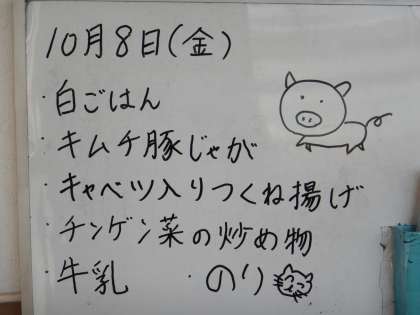 10月8日(金)
・白ごはん
・キムチ豚じゃが
・キャベツ入りつくね揚げ
・チンゲン菜の炒め物
・牛乳 ・のり